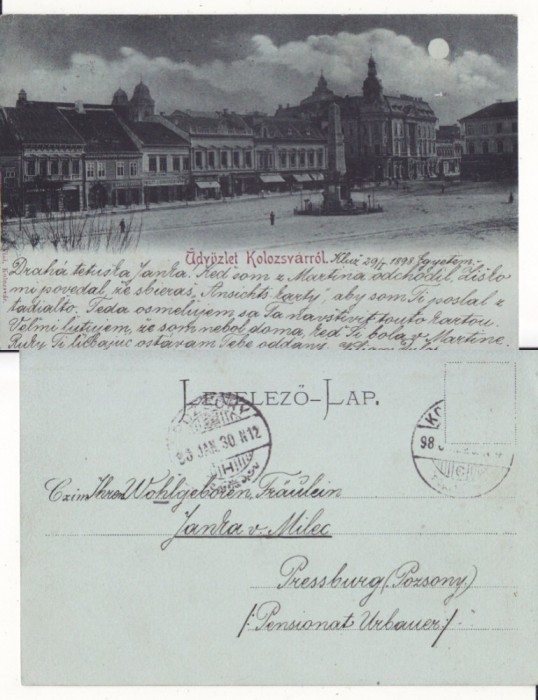 Üdvözlet Kolozsvárról.
Kluž 29/1 1898
Drahá tetuska Janka. Ked som z Martina odchodil, Ziško
mi povedal, že sbieraš "Ansichts karty", aby som Ti poslal z
tadialto. Teda osmelujem sa Ta navštíviť touto kartou.
Velmi lutujem, že som nebol doma, ked Ti bola v Martine.
Ruky Ti lúbajuc ostávam Tebe oddaný
LEVELEZŐ-LAP.
POZSONY
98 JAN. 30 N12
98
Czim Ihren Wohlgeboren Fräulein
Janka v. Milec
Pressburg (Pozsony)
/: Pensionat Urbauer :/